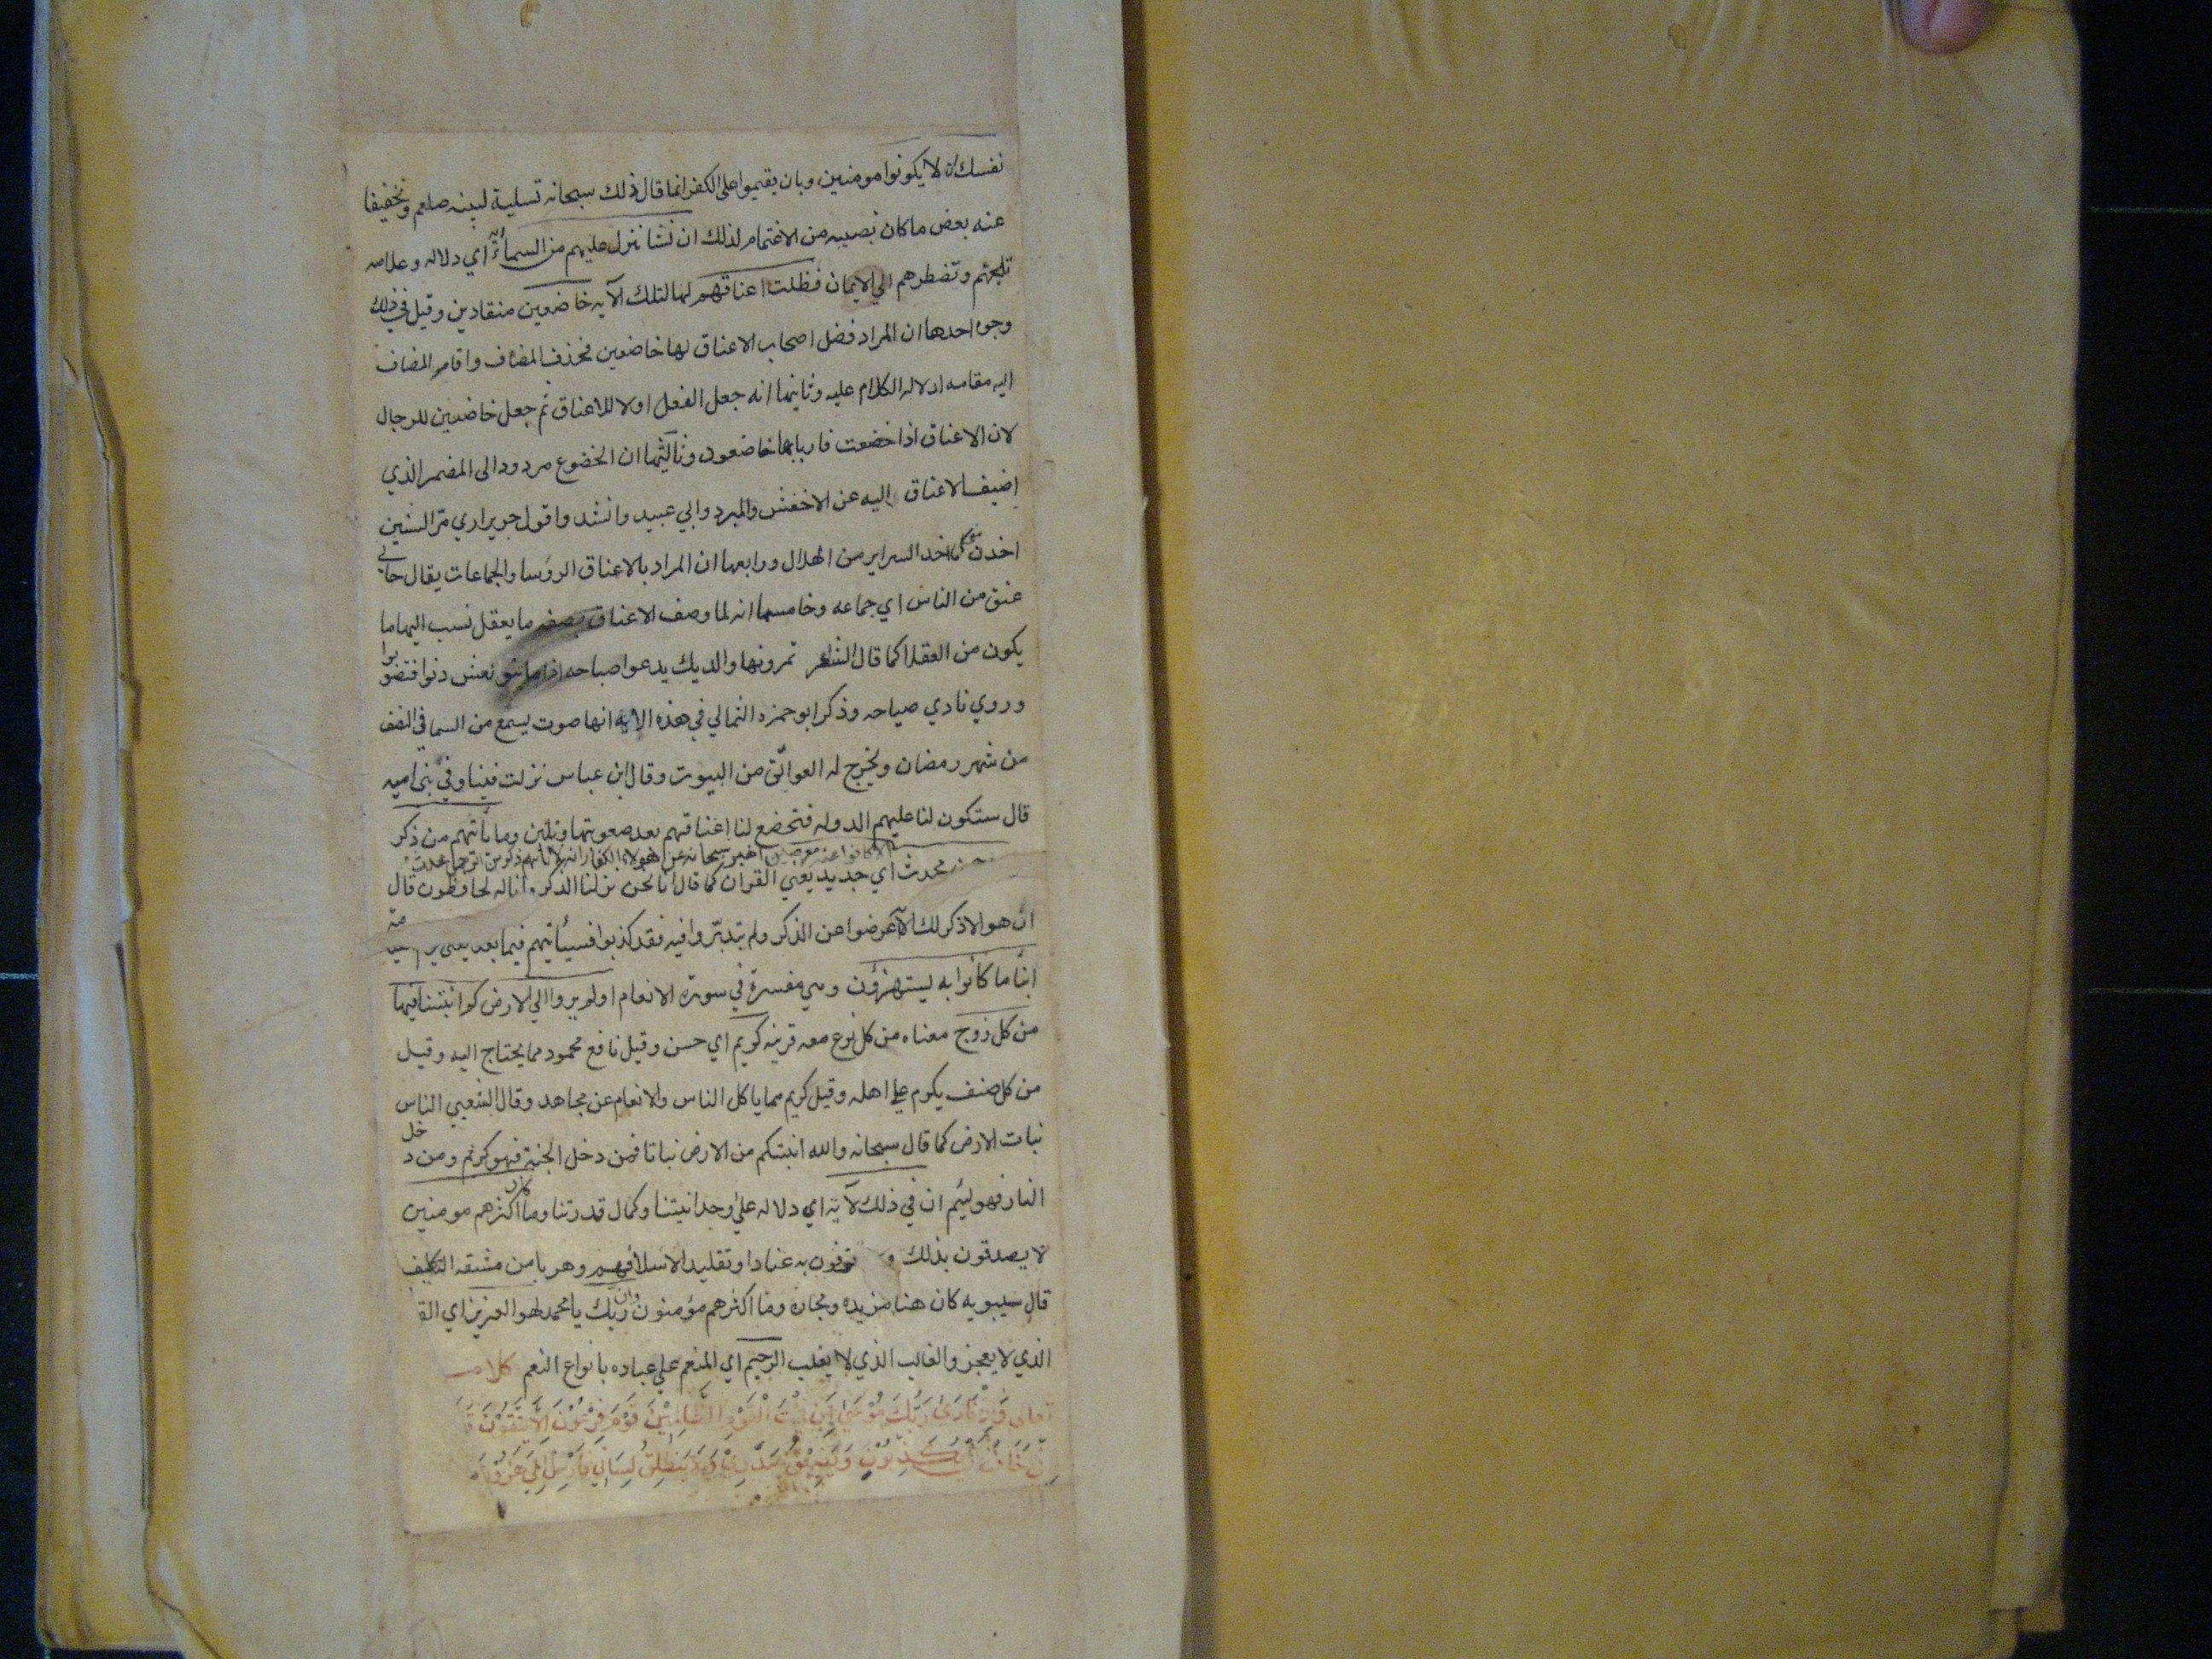 نفسك ان لا يكونوا مومنين وبان يقيموا على الكفر انما قال ذلك سبحانه تسلية لنبيه صلعم وتخفيفا
عنه بعض ما كان يصيبه من الاغتمام لذلك ان نشا ننزل عليهم من السماء اية اي دلاله وعلامه
تلجئهم وتضطرهم الي الايمان فظلت اعناقهم لها لتلك الآيه خاضعين منقادين وقيل في ذلك
وجوه احدها ان المراد فضل اصحاب الاعناق لها خاضعين فحذف المضاف واقام المضاف
اليه مقامه لدلاله الكلام عليه وثانيها انه جعل الفعل اولا للاعناق ثم جعل خاضعين للرجال
لان الاعناق اذا خضعت فاربابها خاضعون وثالثها ان الخضوع مردود الى المضمر الذي
اضيف الاعناق اليه عن الاخفش والمبرد وابي عبيد وانشدوا قول جرير اري مر السنين
اخدن مني كما اخد السرار من الهلال ورابعها ان المراد بالاعناق الروسا والجماعات يقال جاني
عنق من الناس اي جماعه وخامسها انه لما وصف الاعناق بصفه ما يعقل نسب اليها ما
يكون من العقلا كما قال الشاعر تمززتها والديك يدعوا صباحه اذا ما بنو نعش دنوا فتصوبوا
وروي نادي صباحه وذكر ابو حمزه الثمالي في هذه الايه انها صوت يسمع من السما في النصف
من شهر رمضان ويخرج له العواتق من البيوت وقال ابن عباس نزلت فينا وفي بني اميه
قال ستكون لنا عليهم الدوله فتخضع لنا اعناقهم بعد صعوبتها وتلين وما يأتيهم من ذكر
الا كانوا عنه معرضين اخبر سبحانه عن هولاء الكفار انه لا ياتيهم ذكر من الرحمن محدث
محدث اي جديد يعني القران كما قال انا نحن نزلنا الذكر وانا له لحافظون قال
ان هو الا ذكر لك الا اعرضوا عن الذكر ولم يتدبروا فيه فقد كذبوا فسيأتيهم فيما بعد يعني يوم القيمة
انبٰأ ما كانوا به يستهزؤن وهي مفسرة في سورة الانعام اولم يروا الي الارض كم انبتنا فيها
من كل زوج معناه من كل نوع معه قرينه كريم اي حسن وقيل نافع محمود مما يحتاج اليه وقيل
من كل صنف يكرم علي اهله وقيل كريم مما ياكل الناس والانعام عن مجاهد وقال الشعبي الناس
نبات الارض كما قال سبحانه والله انبتكم من الارض نباتا فمن دخل الجنة فهو كريم ومن دخل
النار فهو لئيم ان في ذلك لآية اي دلاله علي وحدانيتنا وكمال قدرتنا وما كان اكثرهم مومنين
لا يصدقون بذلك و به عنادا وتقليدا لاسلافهم وهربا من مشقه التكليف
قال سيبويه كان هنا مزيده ومجازه وما اكثرهم مؤمنون وان ربك يا محمد لهو العزيز اي
الذي لا يعجز والغالب الذي لا يغلب الرحيم اي المنعم علي عباده بانواع النعم كلام
تعالي وَاِذْ نَادَىٰ رَبُّكَ مُوسٰي اَنِ ائْتِ الْقَوْمَ الظَّالِمِيْنَ قَوْمَ فِرْعَوْنَ اَلَا يَتَّقُوْنَ
اَخَافُ اَنْ يُكَذِّبُوْنِ وَيَضِيْقُ صَدْرِيْ وَلَا يَنْطَلِقُ لِسَانِيْ فَاَرْسِلْ اِلٰي هٰرُوْنَ